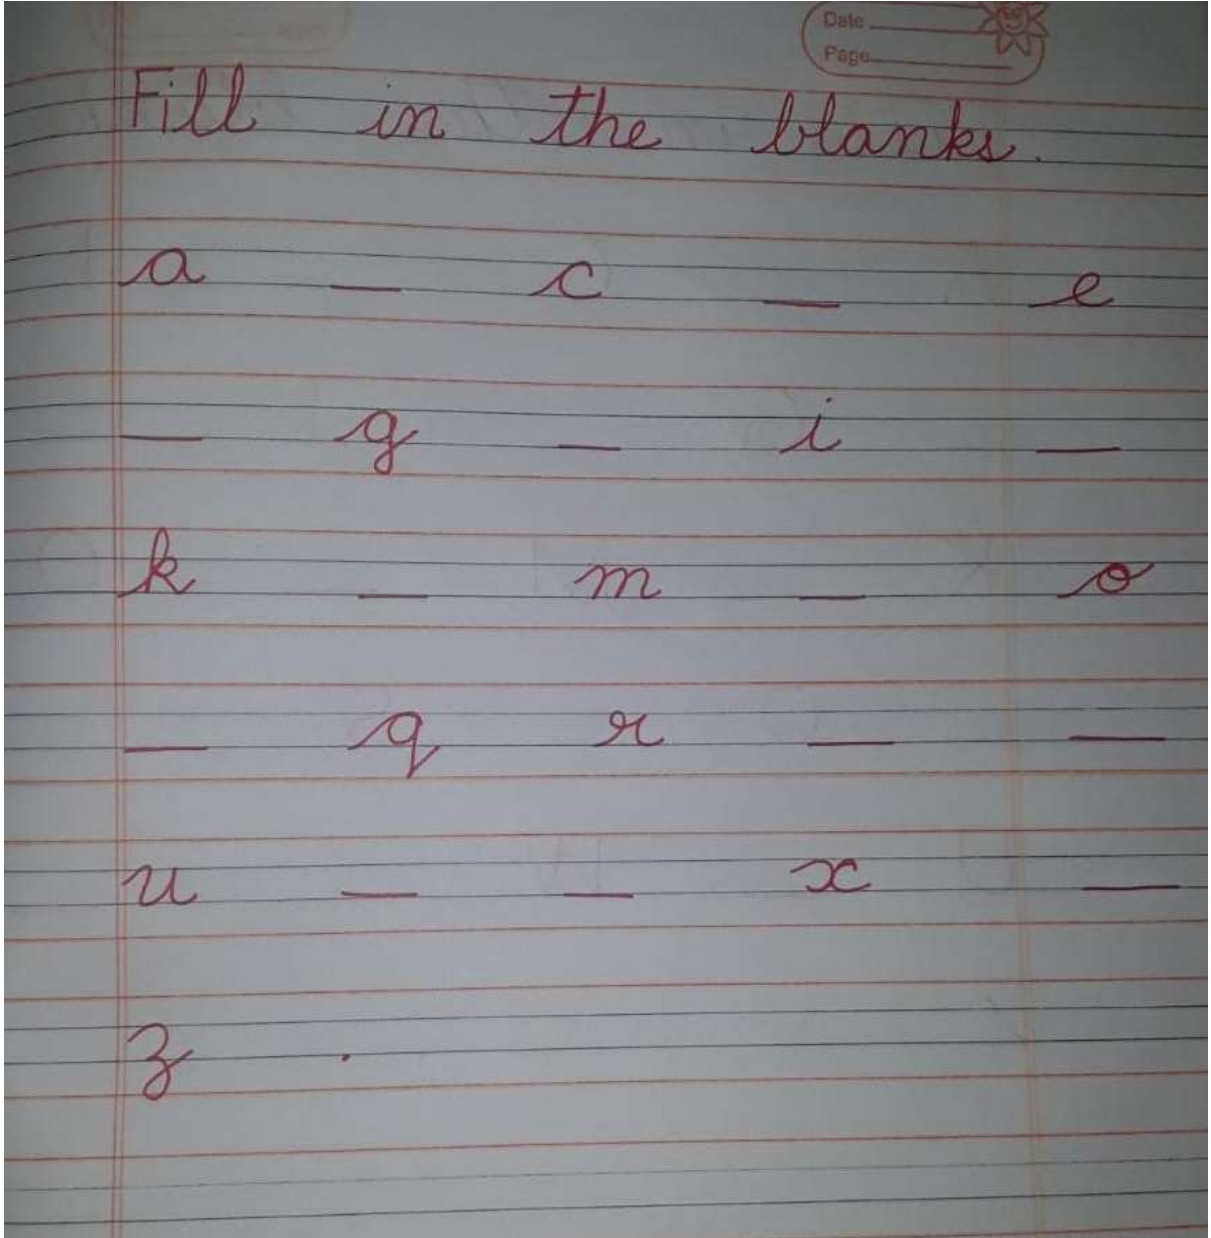 Date
Page
Fill in the blanks.
a _ c _ e
_ g _ i _
k _ m _ o
_ q r _ _
u _ _ x _
z .